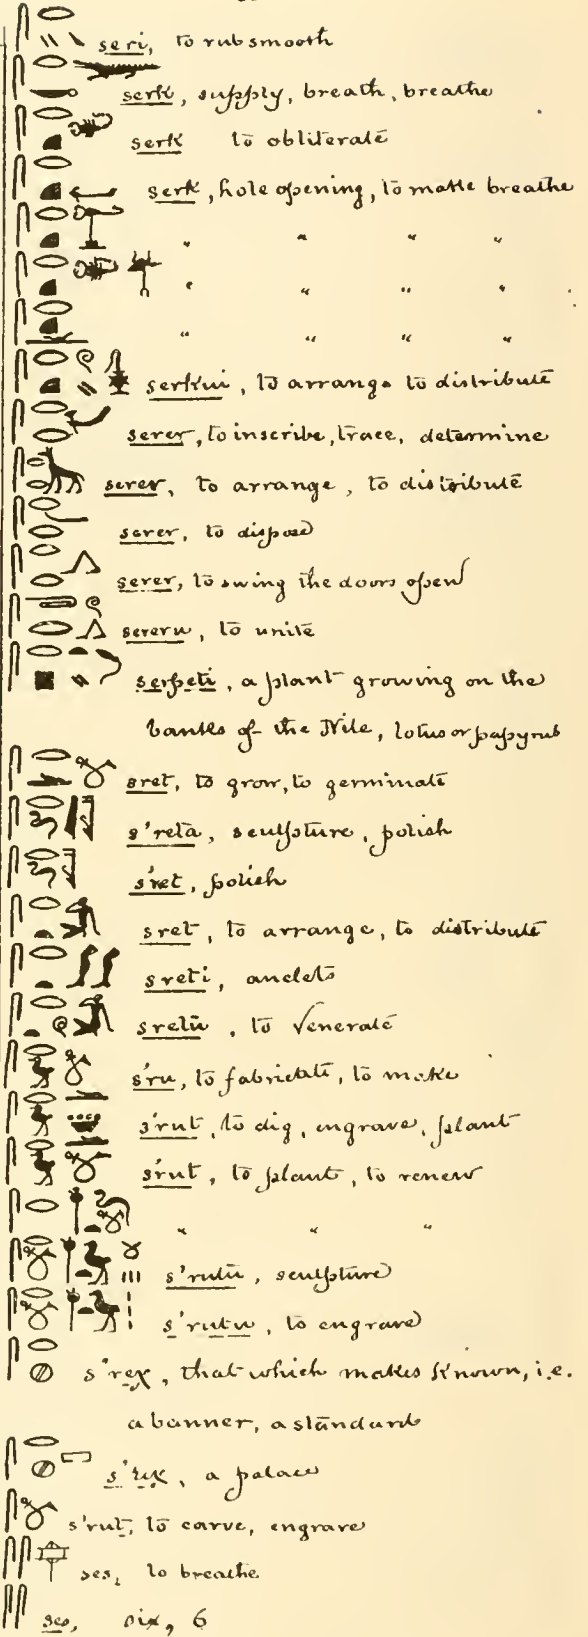 seri, to rub smooth
serk, supply, breath, breathe
serk to obliterate
serk, hole opening, to make breathe
" " " "
" " " "
" " " "
serkui, to arrange to distribute
serer, to inscribe, trace, determine
serer, to arrange, to distribute
serer, to dispose
serer, to swing the doors open
sereru, to unite
serpeti, a plant growing on the
banks of the Nile, lotus or papyrus
sret, to grow, to germinate
s'reta, sculpture, polish
s'ret, polish
sret, to arrange, to distribute
sreti, anclets
sretu, to venerate
s'ru, to fabricate, to make
s'rut, to dig, engrave, plant
s'rut, to plant, to renew
" " "
s'rutu, sculpture
s'rutu, to engrave
s'reχ, that which makes known, i.e.
a banner, a standard
s'reχ, a palace
s'rut, to carve, engrave
ses, to breathe
ses, six, 6